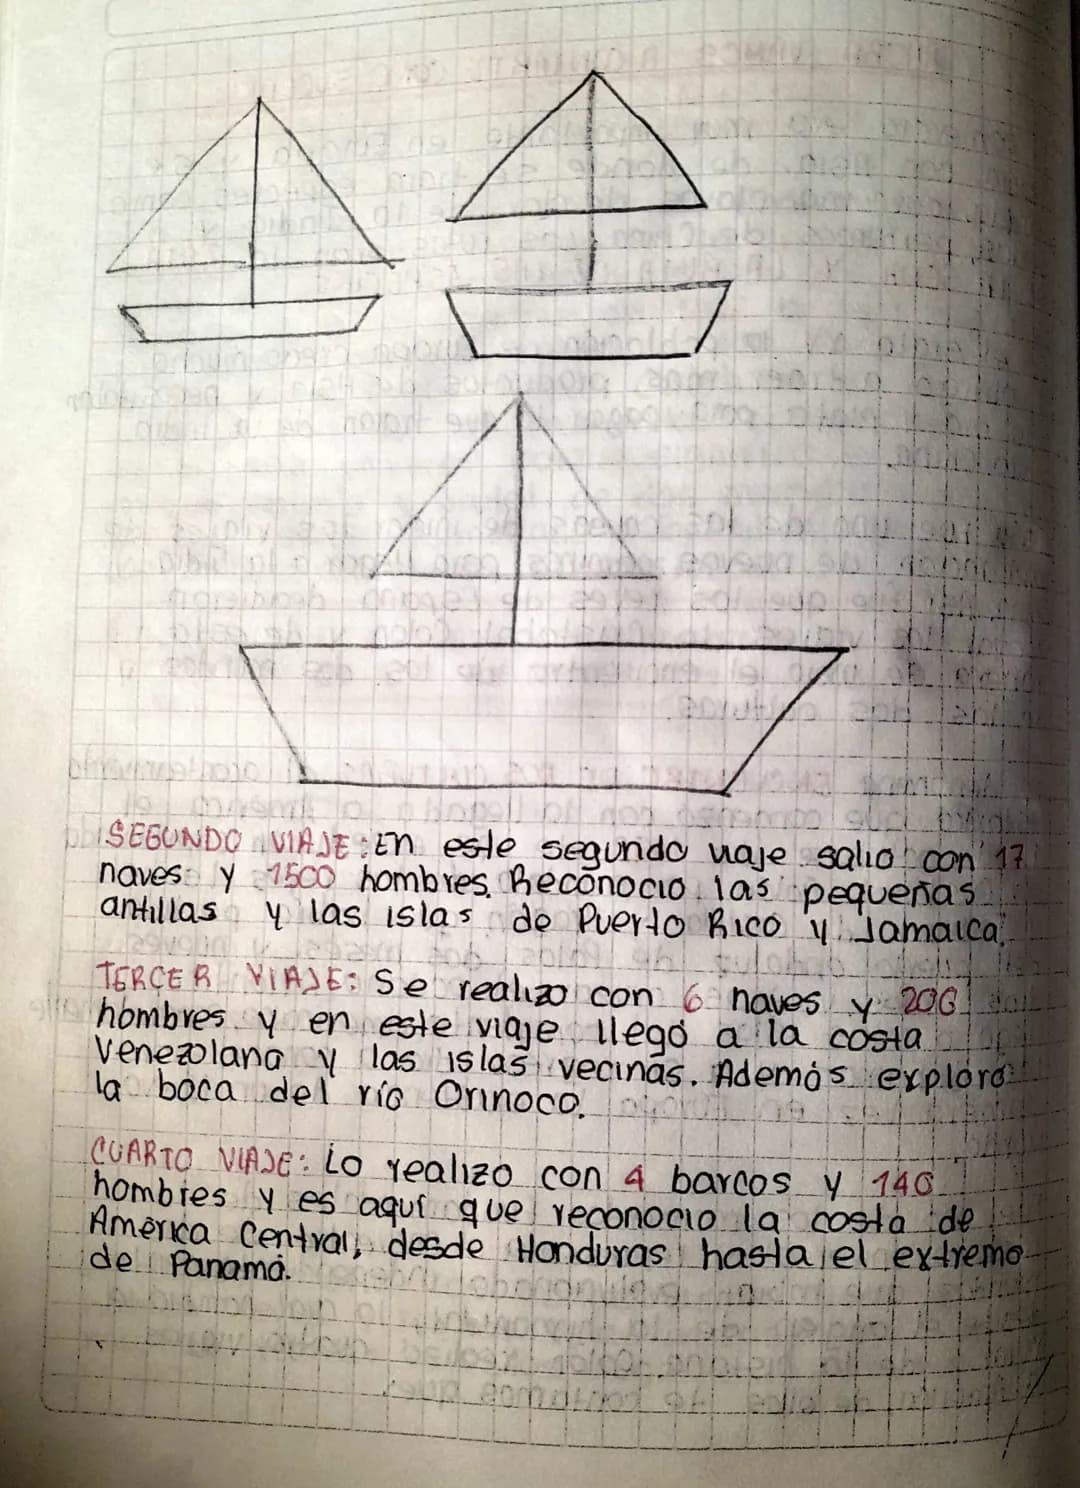 SEGUNDO VIAJE: En este segundo viaje salio con 17
naves y 1500 hombres. Reconocio las pequeñas
antillas y las islas de Puerto Rico y Jamaica.
TERCER VIAJE: Se realizo con 6 naves y 200
hombres y en este viaje llegó a la costa
Venezolana y las islas vecinas. Además exploro
la boca del río Orinoco.
CUARTO VIAJE: Lo realizo con 4 barcos y 140
hombres y es aquí que reconocio la costa de
América Central, desde Honduras hasta el extremo
de Panamá.